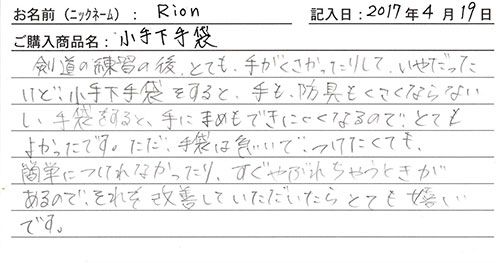 お名前(ニックネーム): Rion 記入日:2017年4月19日
ご購入商品名:小手下手袋
剣道の練習の後、とても、手がくさかったりして、いやだった
けど、小手下手袋をすると、手も、防具もくさくならない
し、手袋をすると、手にまめもできにくくなるので、とても
よかったです。ただ、手袋は急いで、つけたくても、
簡単につけれなかったり、すぐやぶれちゃうときが
あるので、それを改善していただいたらとても嬉しい
です。